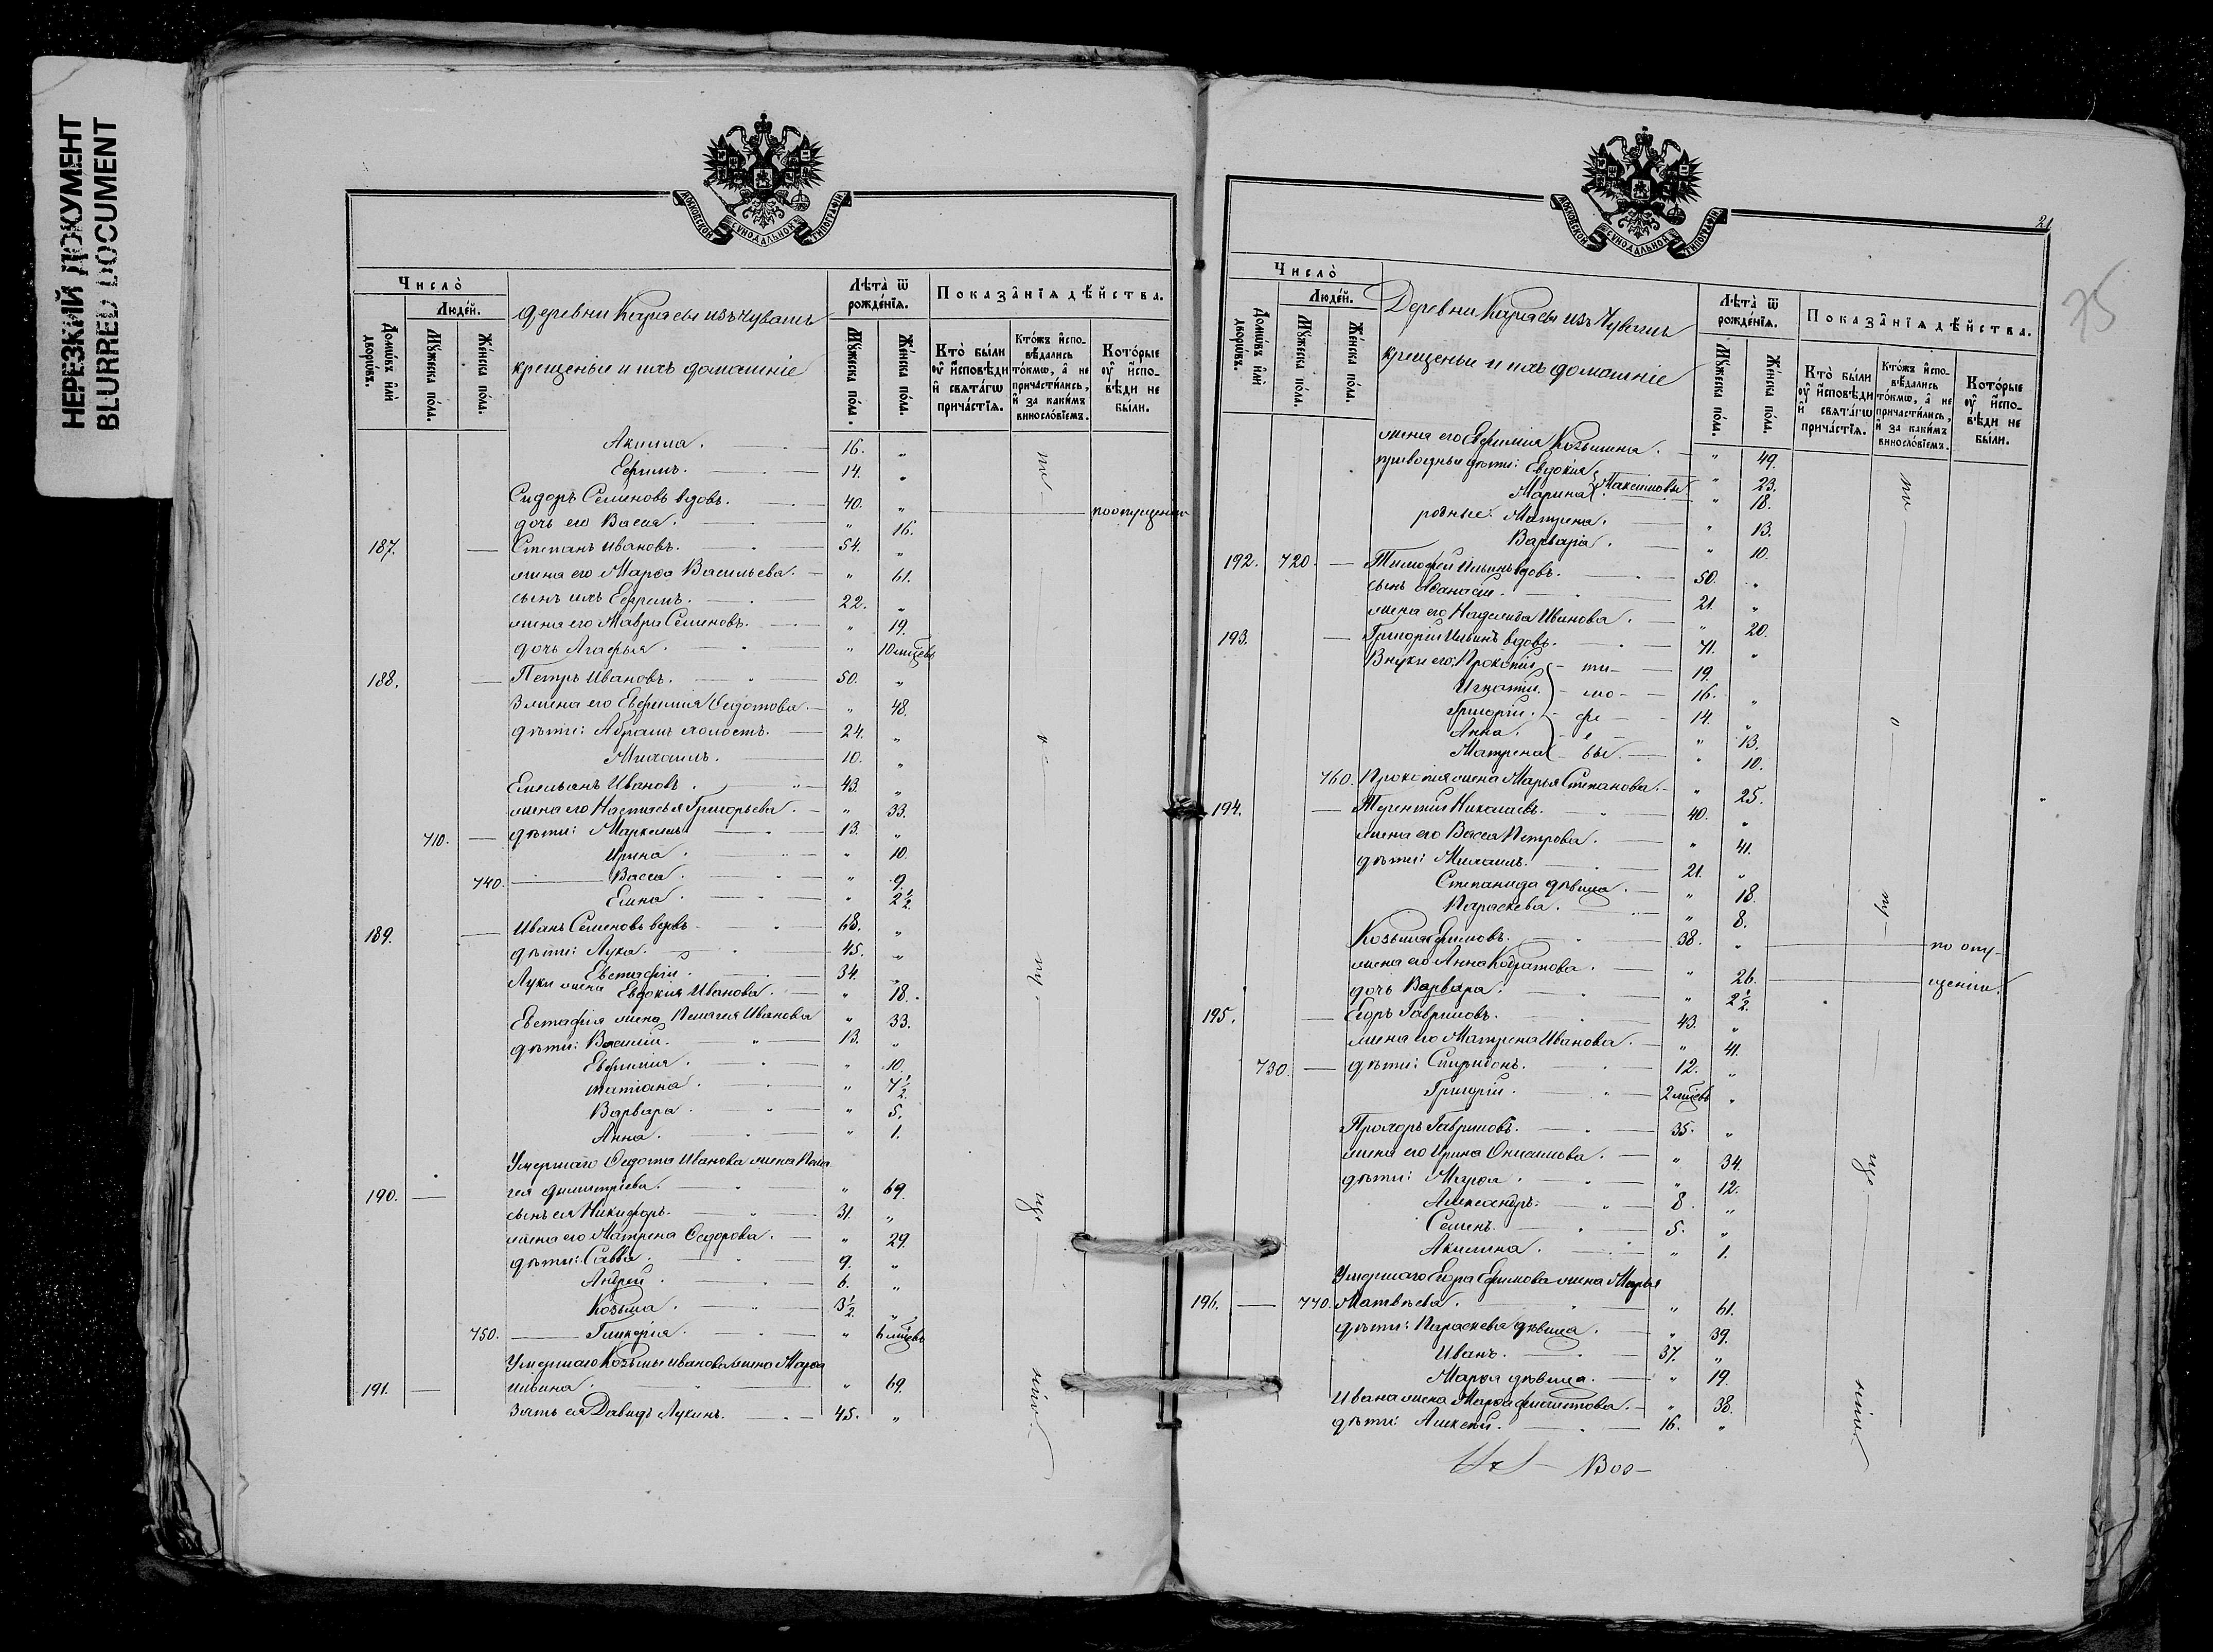 НЕРЕЗКИЙ ДОКУМЕНТ
BLURRED DOCUMENT
МОСКОВСКОЙ СѴНОДАЛЬНОЙ ТИПОГРАФІИ
Число̀
Люде́й.
Домѡ́въ и҆лѝ дворѡ́въ.
Мꙋ́жеска по́ла.
Же́нска по́ла.
деревни Карасы изъ чувашъ
крещеные и ихъ домашніе
Лѣта̀ ѿ рожде́нїѧ.
Мꙋ́жеска по́ла.
Же́нска по́ла.
Показа̑нїѧ дѣ́йства.
Кто̀ бы́ли ᲂу҆ и҆́сповѣди и҆ свѧта́гѡ прича́стїѧ.
Кто́жъ и҆сповѣ́дались то́кмѡ, а҆ не причасти́лись, и҆ за каки́мъ винosло́вїемъ.
Кото́рые ᲂу҆ и҆́сповѣди не бы́ли.
Акима. 16. „
Ефимъ. 14. „
Сидоръ Семеновъ вдовъ. 40. „
дочь его Васса. „ 16. по опущенію
187. Степанъ Ивановъ. 54. „
жена его Марѳа Васильева. „ 61.
сынъ ихъ Ефремъ. 22. „
жена его Мавра Семеновъ. „ 19.
дочь Агафья. „ 10 мѣсцевъ
188. Петръ Ивановъ. 50. „
жена его Евфимія Ѳедотова. „ 48.
дѣти: Абрамъ холостъ. 24. „
Михаилъ. 10. „
Емельянъ Ивановъ. 43. „
жена его Настасья Григорьева. „ 33.
710. дѣти: Маркелъ 13. „
Ирина. „ 10.
740. Васса. „ 9.
Елена. „ 2½.
189. Иванъ Семеновъ вдовъ 68. „
дѣти: Лука. 45. „
Евстафій. 34. „
Луки жена Евдокия Иванова. „ 18.
Евстафія жена Пелагея Иванова „ 33.
дѣти: Василій. 13. „
Евфимія. „ 10.
Татіана. „ 7½
Варвара. „ 5.
Анна. „ 1.
Умершаго Ѳедота Иванова жена Пела
190. гея Димитріева. „ 69.
сынъ ея Никифоръ. 31. „
жена его Матрена Ѳедорова. „ 29.
дѣти: Савва. 9. „
Андрей. 6. „
Козьма. 3½ „
750. Гликерія. „ 6 мѣсцевъ
Умершаго Козьмы Иванова жена Марѳа
191. Ильина. „ 69.
Зять ея Давидъ Лукинъ. 45. „
21
75
МОСКОВСКОЙ СѴНОДАЛЬНОЙ ТИПОГРАФІИ
Число̀
Люде́й.
Домѡ́въ и҆лѝ дворѡ́въ.
Мꙋ́жеска по́ла.
Же́нска по́ла.
Деревни Карасы изъ Чувашъ
крещеные и ихъ домашніе
Лѣта̀ ѿ рожде́нїѧ.
Мꙋ́жеска по́ла.
Же́нска по́ла.
Показа̑нїѧ дѣ́йства.
Кто̀ бы́ли ᲂу҆ и҆́сповѣди и҆ свѧта́гѡ прича́стїѧ.
Кто́жъ и҆сповѣ́дались то́кмѡ, а҆ не причасти́лись, и҆ за каки́мъ винosло́вїемъ.
Кото́рые ᲂу҆ и҆́сповѣди не бы́ли.
жена его Евфимія Козьмина. „ 49.
приводные дѣти: Евдокия „ 23.
Марина Максимовы „ 18.
родные: Матрена. „ 13.
Варвара. „ 10.
192. 720. Тимофей Ильинъ вдовъ. 50. „
сынъ Аѳанасій. 21. „
жена его Надежда Иванова. „ 20.
193. Григорій Ильинъ вдовъ. 71. „
Внуки его: Прокопій ти 19.
Игнатій. мо 16. „
Григорій. фе 14. „
Анна. е „ 13.
Матрена вы „ 10.
760. Прокопія жена Марья Степанова. „ 25.
194. Терентій Николаевъ. 40. „
жена его Васса Петрова. „ 41.
дѣти: Михаилъ. 21. „
Степанида дѣвица. „ 18.
Параскева. „ 8.
Козьма Ефимовъ. 38. „ по опу
жена его Анна Кодратова. „ 26. щенію.
дочь Варвара. „ 2½
195. Егоръ Гавриловъ. 43. „
жена его Матрена Иванова. „ 41.
730. дѣти: Спиридонъ. 12. „
Григорій. 2 мѣсцевъ „
Прохоръ Гавриловъ. 35. „
жена его Ирина Онисимова. „ 34.
дѣти: Марѳа. „ 12.
Александръ. 8. „
Семенъ. 5. „
Акилина. „ 1.
Умершаго Егора Ефимова жена Марья
196. 770. Матвѣева. „ 61.
дѣти: Параскева дѣвица. „ 39.
Иванъ. 37. „
Марѳа дѣвица. „ 19.
Ивана жена Марѳа Филиппова. „ 38.
дѣти: Алексѣй. 16. „
Вос-